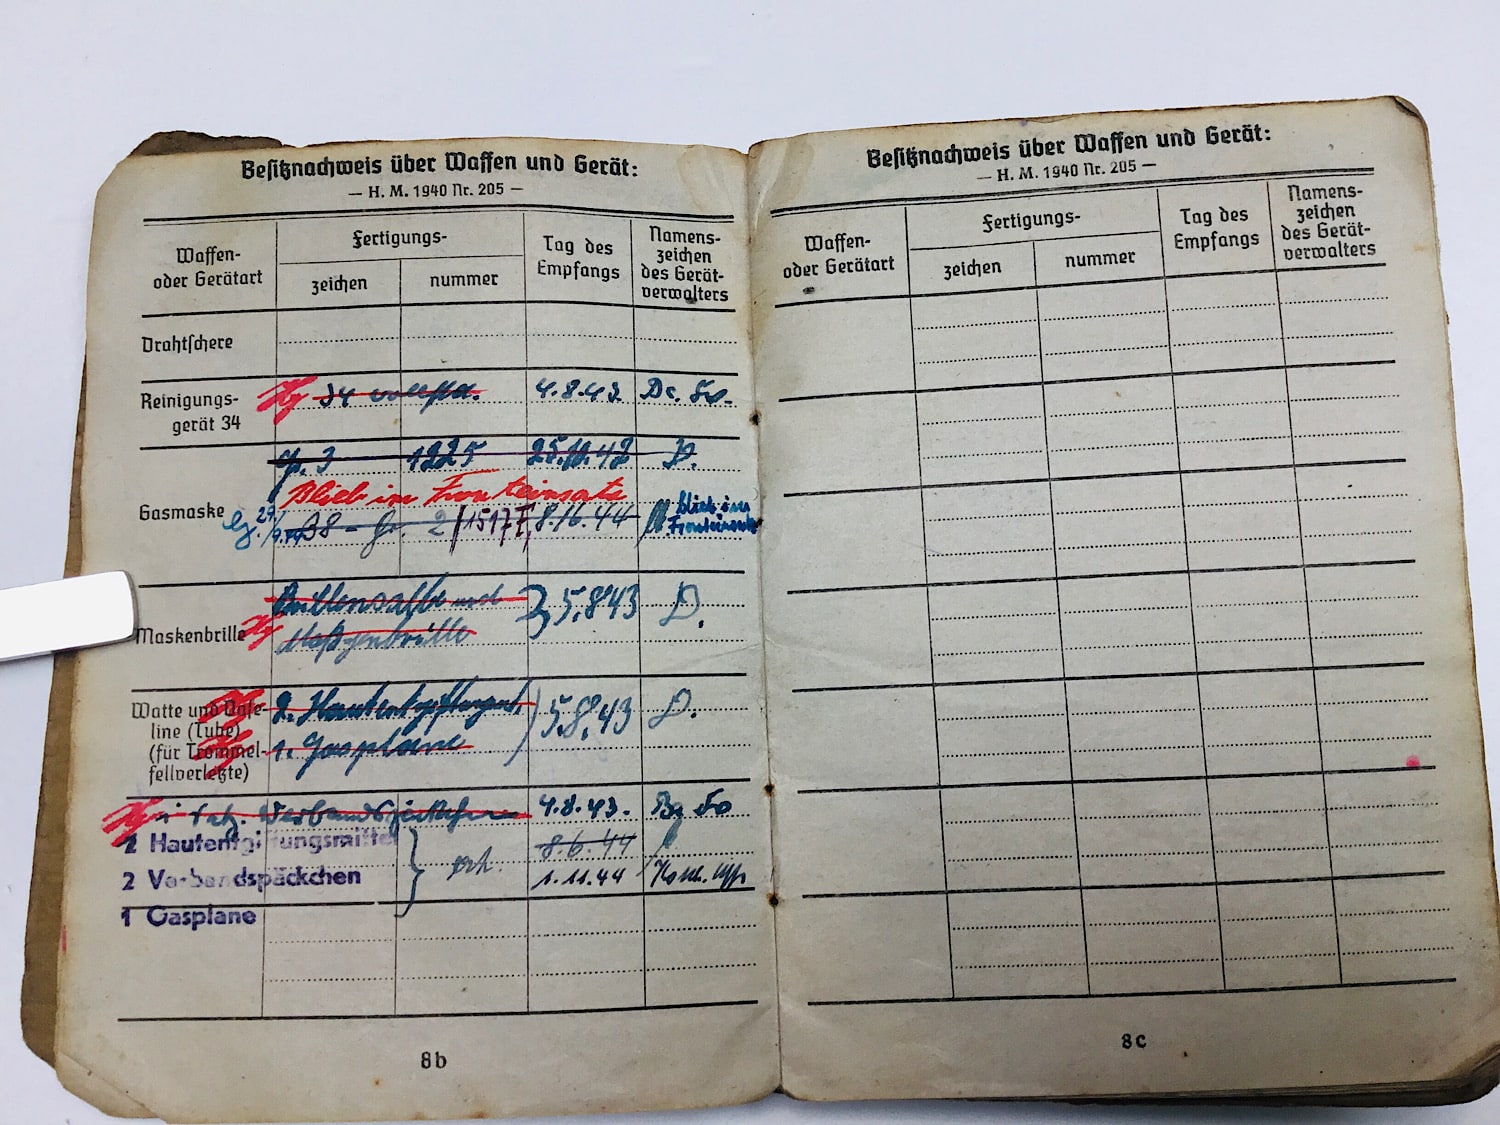 Besitznachweis über Waffen und Gerät:
— H. M. 1940 Nr. 205 —
Waffen-
oder Gerätart
Fertigungs-
zeichen
nummer
Tag des
Empfangs
Namens-
zeichen
des Gerät-
verwalters
Drahtschere
Reinigungs-
gerät 34
34
4.8.43
Gasmaske
3 1225 25.10.42 D.
Blieb im Fronteinsatz
29
38 - 2 1517 F 8.16.44
blieb im
Fronteinsatz
Maskenbrille
Brillensalbe und
5.8.43 D.
Watte und Vase-
line (Tube)
(für Trommel-
fellverletzte)
2. Hautentgiftungsmittel
1. Gasplane
5.8.43 D.
Verbandspäckchen 4.8.43.
2 Hautentgiftungsmittel
8.6.44
2 Verbandspäckchen
1.11.44
1 Gasplane
8b
Besitznachweis über Waffen und Gerät:
— H. M. 1940 Nr. 205 —
Waffen-
oder Gerätart
Fertigungs-
zeichen
nummer
Tag des
Empfangs
Namens-
zeichen
des Gerät-
verwalters
8c